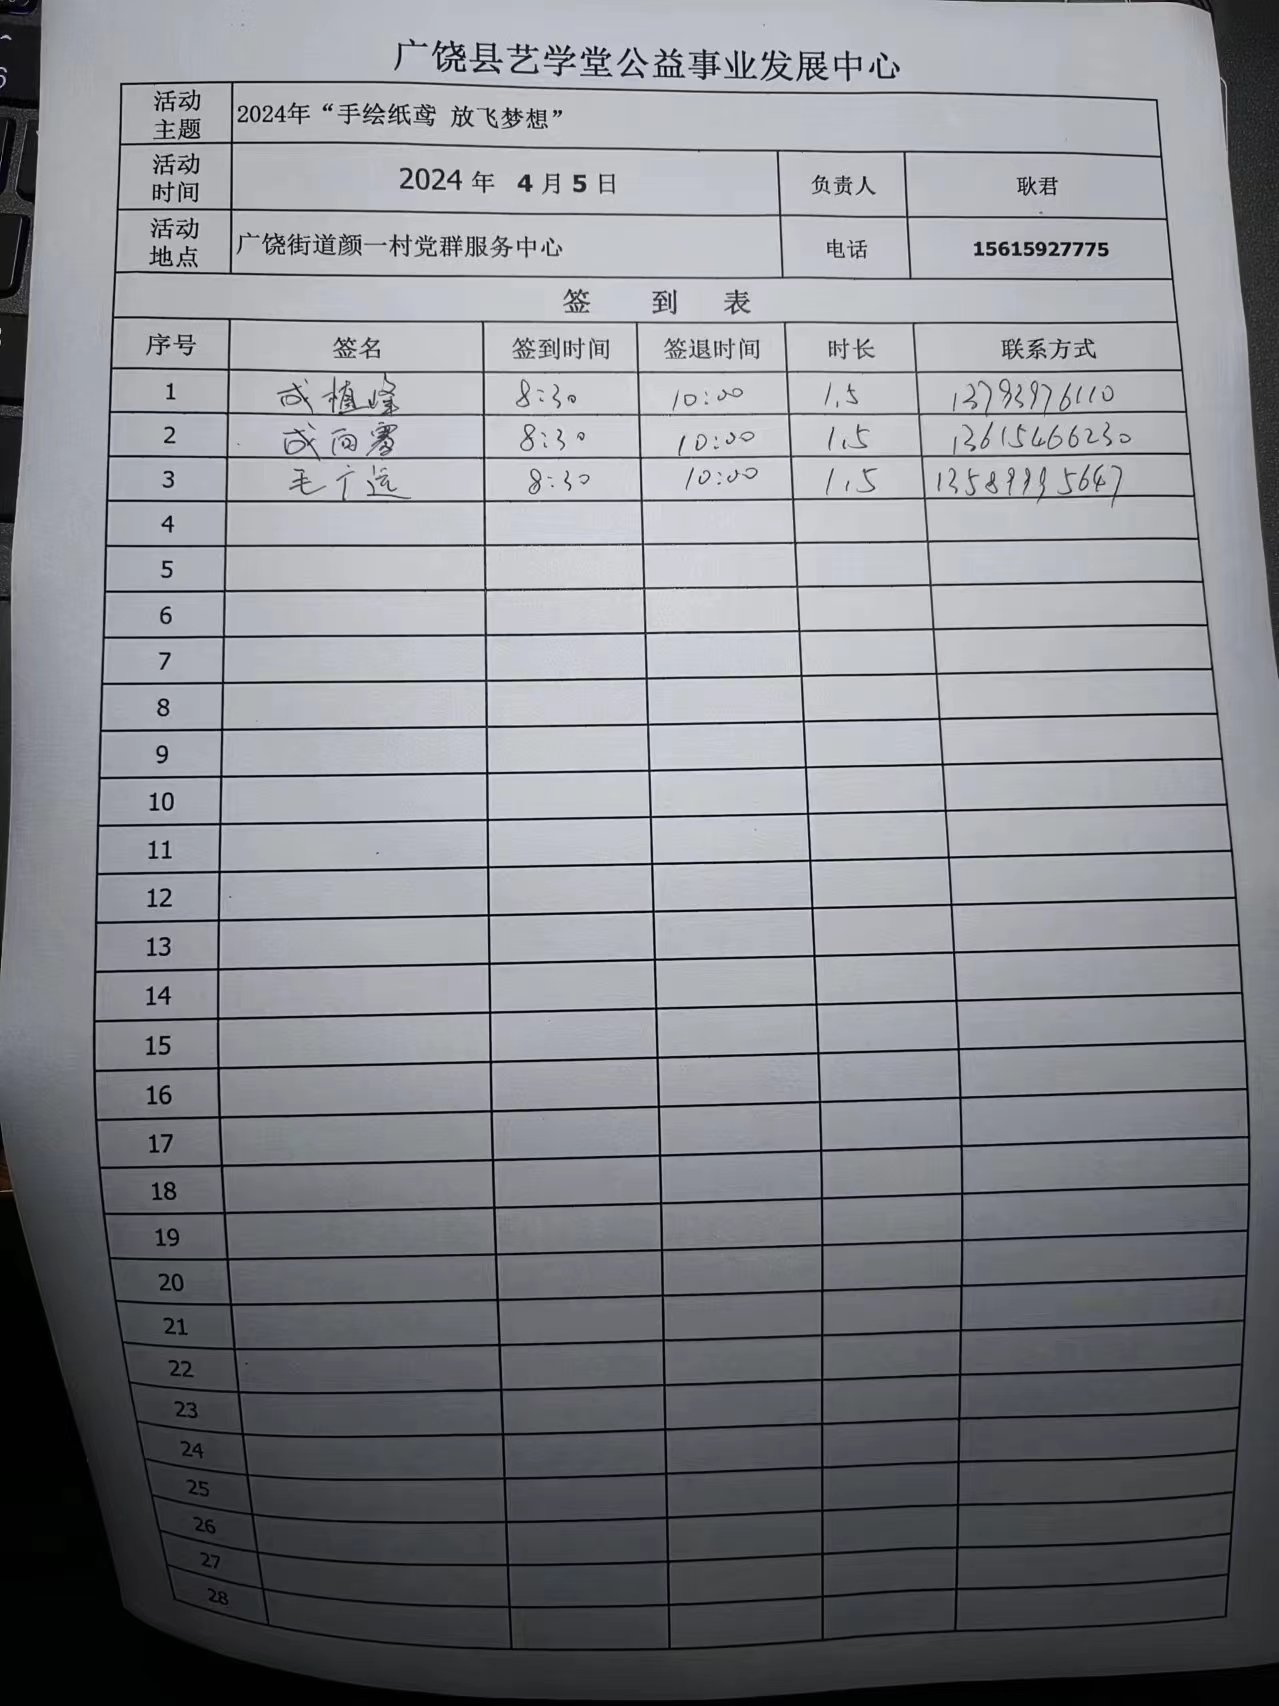 广饶县艺学堂公益事业发展中心
活动主题 2024年“手绘纸鸢 放飞梦想”
活动时间 2024 年 4 月 5 日 负责人 耿君
活动地点 广饶街道颜一村党群服务中心 电话 15615927775
签 到 表
序号 签名 签到时间 签退时间 时长 联系方式
1 成植峰 8:30 10:00 1.5 13793976110
2 成向 8:30 10:00 1.5 13615466230
3 毛广远 8:30 10:00 1.5 13589995647
4
5
6
7
8
9
10
11
12
13
14
15
16
17
18
19
20
21
22
23
24
25
26
27
28